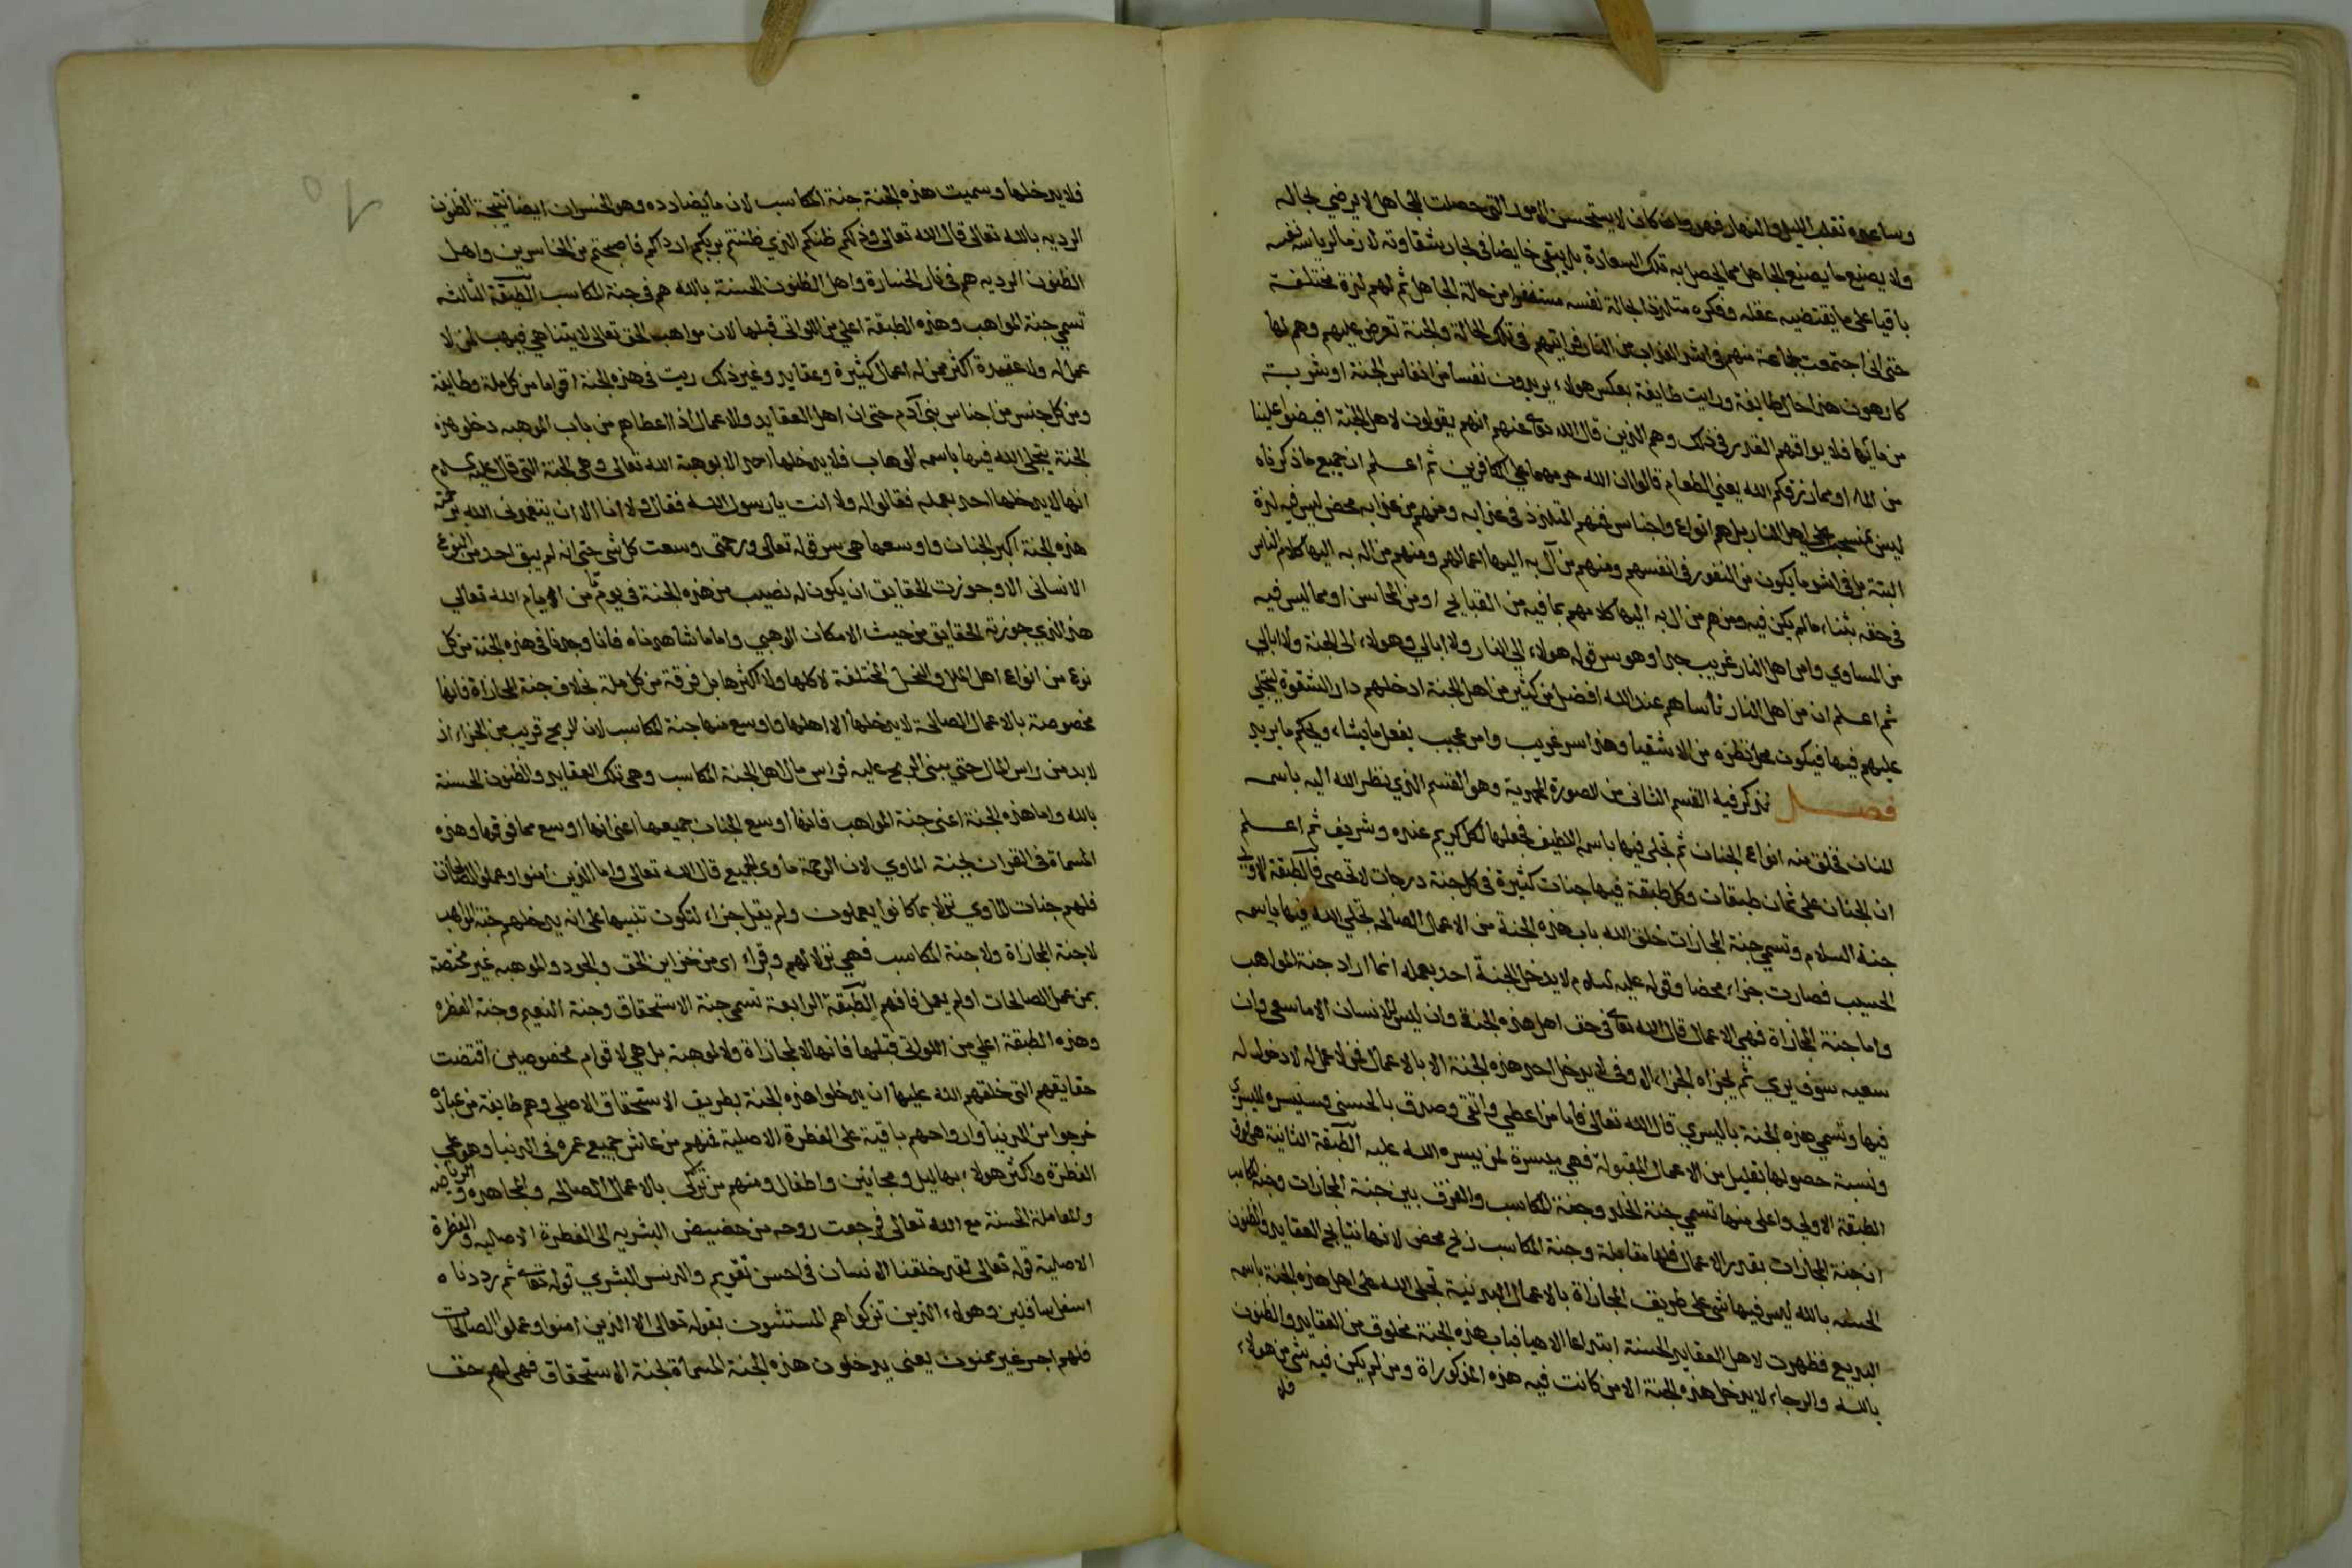 وساعده تقلب الليل والنهار فهو واحد كان لا يستحسن الامور التي حصلت للجاهل لا يرضي بحاله
ولا يصنع ما يصنع الجاهل مما يحصل به تلك السعادة بل يبقى خايضا في بحار شقاوته لازما لرياسة نفسه
باقيا على ما يقتضيه عقله وفكره متلذذا بحالة نفسه مستنفرا من حالة الجاهل ثم لهم لذة مختلفة
حتى اني اجتمعت بجماعة منهم في اشد العذاب من النار فرايتهم في تلك الحالة والجنة تعرض عليهم وهم لها
كارهون هذا حال طايفة ورايت طايفة بعكس هولاء يريدون نفسا من انفاس الجنة او شربة
من مائها فلا يوافقهم القدر في ذلك وهم الذين قال الله تعا عنهم انهم يقولون لاهل الجنة افيضوا علينا
من الماء او مما رزقكم الله يعني الطعام قالوا ان الله حرمهما على الكافرين ثم اعلم ان جميع ما ذكرناه
ليس بمنسحب على اهل النار بل هم انواع واجناس فمنهم المتلذذ في عذابه ومنهم من عذابه محض ليس فيه لذة
البتة بل في اشد ما يكون من النفور في انفسهم ومنهم من آل به اليها اعمالهم ومنهم من آل به اليها كلام الناس
في حقه بثناء ما لم يكن فيه ومنهم من ال به اليها كلامهم بما فيه من القبايح او من المحاسن او مما ليس فيه
من المساوي وامر اهل النار غريب جدا وهو سر قوله هولاء الى النار ولا ابالي وهولاء الى الجنة ولا ابالي
ثم اعلم ان من اهل النار ناسا هم عند الله افضل من كثير من اهل الجنة ادخلهم دار الشقوة ليتجلى
عليهم فيها فيكون محل نظره من الاشقيا وهذا سر غريب وامر عجيب يفعل ما يشاء ويحكم ما يريد
فصل نذكر فيه القسم الثاني من الصورة المحمدية وهو القسم الذي نظر الله اليه باسمه
المنان فخلق منه انواع الجنان ثم تجلى فيها باسمه اللطيف فجعلها لكل كريم عنده وشريف ثم اعلم
ان الجنان على ثمان طبقات وكل طبقة فيها جنات كثيرة في كل جنة درجات لا تحصى فالطبقة الاولى
جنة السلام وتسمى جنة المجازات خلق الله باب هذه الجنة من الاعمال الصالحه تجلي الله فيها باسمه
الحسيب فصارت جزاء محضا وقوله عليه السلام لا يدخل الجنة احد بعمله انما اراد جنة المواهب
واما جنة المجازاة فهي الاعمال قال الله تعا في حق اهل هذه الجنة وان ليس للانسان الا ما سعى وان
سعيه سوف يرى ثم يجزاه الجزاء الاوفى لا يدخل احد هذه الجنة الا بالاعمال فمن لا عمل له لا دخول له
فيها وتسمى هذه الجنة باليسرى قال الله تعالى فاما من اعطى واتقى وصدق بالحسنى فسنيسره لليسرى
ونسبة حصولها بقليل من الاعمال المقبولة فهي ميسرة لمن يسره الله عليه الطبقة الثانية هي فوق
الطبقة الاولى واعلى منها تسمى جنة الخلد وجنة المكاسب والفرق بين جنة المجازات وجنة المكاسب
ان جنة المجازات بقدر الاعمال فلها مقابلة وجنة المكاسب ربح محض لانها نتايج العقايد والظنون
الحسنه بالله ليس فيها شى على طريق المجازاة بالاعمال البدنية تجلى الله على اهل هذه الجنة باسمه
البديع فظهرت لاهل العقايد الحسنة ابتداعا الاهيا فباب هذه الجنة مخلوق من العقايد والظنون
بالله والرجاء لا يدخل هذه الجنة الا من كانت فيه هذه المذكوراة ومن لم يكن فيه شى من هولاء
فلا
فلا يدخلها وسميت هذه الجنة جنة المكاسب لان ما يضادده وهو الخسران ايضا نتيجة الظنون
الرديه بالله تعالى قال الله تعالى وذلكم ظنكم الذي ظننتم بربكم ارداكم فاصبحتم من الخاسرين واهل
الظنون الرديه هم في نار الخسارة واهل الظنون الحسنة بالله هم في جنة المكاسب الطبقة الثالثه
تسمى جنة المواهب وهذه الطبقة اعلى من اللواتي قبلها لان مواهب الحق تعالى لا يتناهى فيهب لمن لا
عمل له ولا عقيدة اكثر ممن له اعمال كثيرة وعقايد وغير ذلك ريت في هذه الجنة اقواما من كل ملة وطايفة
ومن كل جنس من اجناس بني آدم حتى ان اهل العقايد والاعمال اذا اعطاهم من باب الموهبه دخلو هذه
الجنة يتجلى الله فيها باسمه الوهاب فلا يدخلها احد الا بوهبة الله تعالى وهى الجنة التي قال عليه السلام
انها لا يدخلها احد بعمله فقالوا له ولا انت يا رسول الله فقال ولا انا الا ان يتغمدني الله برحمته
هذه الجنة اكبر الجنات واوسعها هى سر قوله تعالى ورحمتى وسعت كل شى حتى انه لم يبق احد من النوع
الانسانى الا وجوزت الحقايق ان يكون له نصيب من هذه الجنة في يوم ما من الايام الله تعالي
هذا الذي جوزته الحقايق من حيث الامكان الوهبي واما ما شاهدناه فانا وجدنا في هذه الجنة من كل
نوع من انواع اهل الملل والنحل المختلفة لا كلها ولا اكثرها بل فرقة من كل ملة بخلاف جنة المجازاة فانها
مخصوصة بالاعمال الصالحة لا يدخلها الا اهلها واوسع منها جنة المكاسب لان الربح قريب من الجزاء اذ
لا بد من راس المال حتى يبنى الربح عليه فراس مال اهل الجنة المكاسب وهى تلك العقايد والظنون الحسنة
بالله واما هذه الجنة اعنى جنة المواهب فانها اوسع الجنات جميعها اعنى انها اوسع مما فوقها وهذه
المسماة في القران بجنة الماوي لان الرحمة ماوى الجميع قال الله تعالى واما الذين امنوا وعملوا الصالحات
فلهم جنات الماوي نزلا بما كانوا يعملون ولم يقل جزاء لتكون تنبيها على انه يدخلهم جنة المواهب
لا جنة المجازاة ولا جنة المكاسب فهي نزلا لهم وقراء اى من خزاين الحق والجود والموهبه غير مختصة
بمن عمل الصالحات او لم يعمل فافهم الطبقة الرابعة تسمى جنة الاستحقاق وجنة النعيم وجنة الفطره
وهذه الطبقة اعلى من اللواتى قبلها فانها لا بمجازاة ولا بموهبة بل هي لاقوام مخصوصين اقتضت
حقايقهم التى خلقهم الله عليها ان يدخلوا هذه الجنة بطريق الاستحقاق الاصلي وهم طايفة من عباده
خرجوا من الدنيا وارواحهم باقية على الفطرة الاصلية فمنهم من عاش جميع عمره فى الدنيا وهو على
الفطرة واكثر هولاء بهاليل ومجانين واطفال ومنهم من تزكى بالاعمال الصالحه والمجاهده والرياضه
والمعاملة الحسنة مع الله تعالى فرجعت روحه من حضيض البشريه الى الفطرة الاصليه والفطرة
الاصلية قوله تعالى لقد خلقنا الانسان فى احسن تقويم والدنس البشري قوله تعا ثم رددناه
اسفل سافلين وهولاء الذين تزكوا هم المستثنون بقوله تعالى الا الذين امنوا وعملوا الصالحات
فلهم اجر غير ممنون يعنى يدخلون هذه الجنة المسماة بجنة الاستحقاق فهى لهم حق